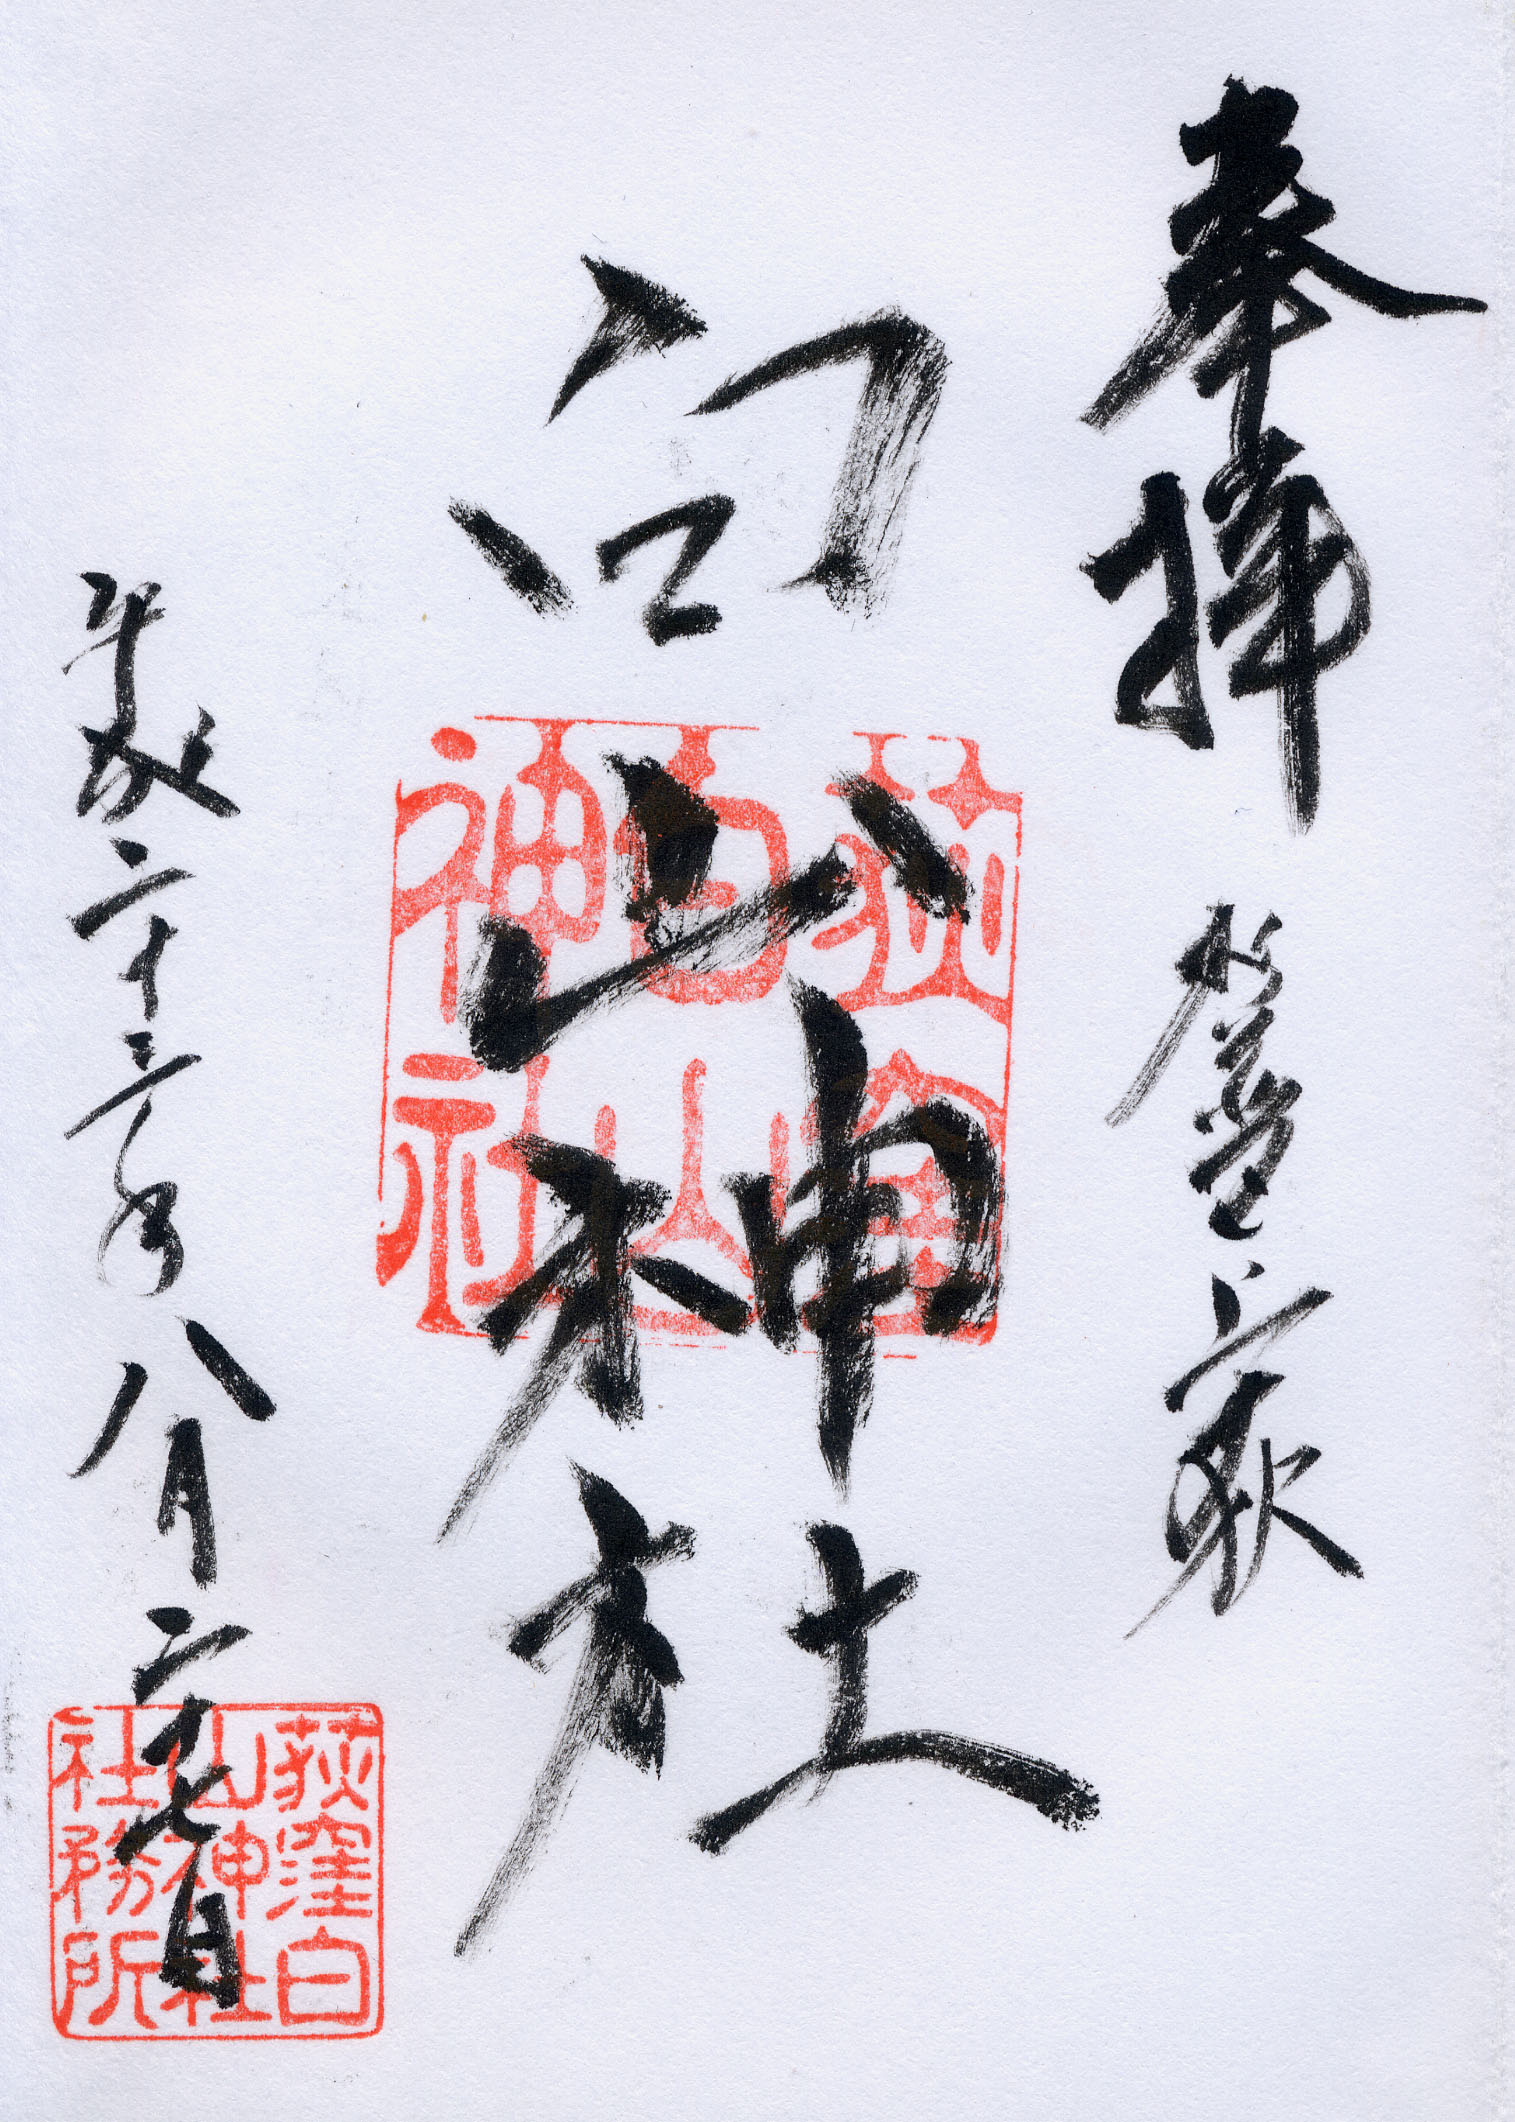 奉拝 杉並上荻
白山神社
平成二十三年八月二十七日
荻窪
白山
神社
荻窪白
山神社
社務所